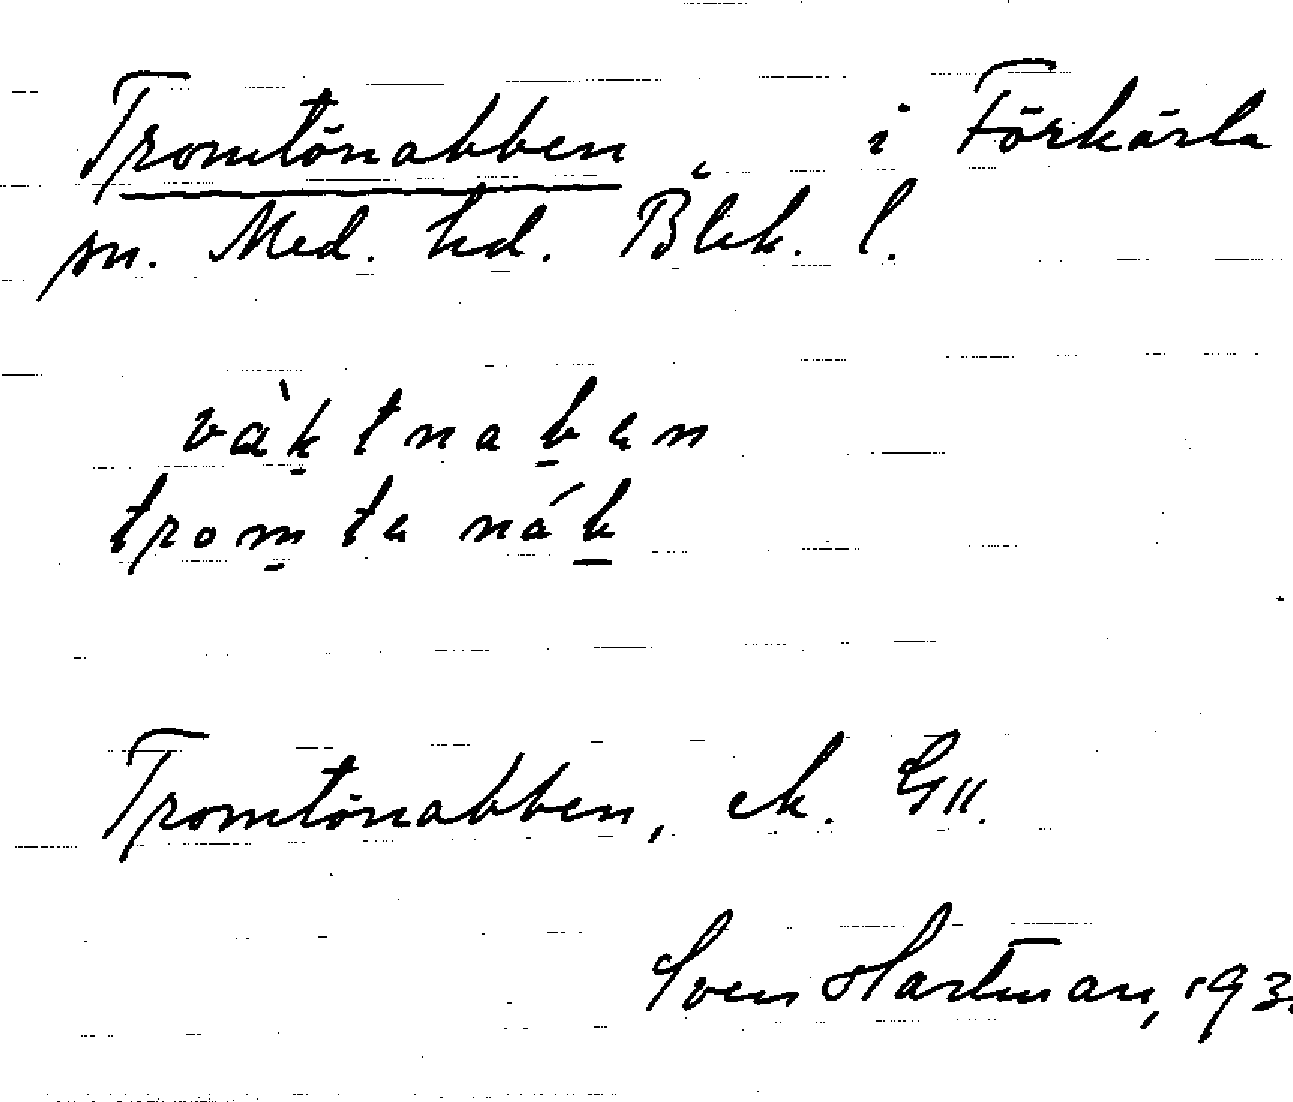 Tromtönabben i Förkärla
sn. Med. hd. Blek. l.
vàk̠tnab̠an
trom̠ta náb̠
Tromtönabben, ek.
Sven Hartman, 193